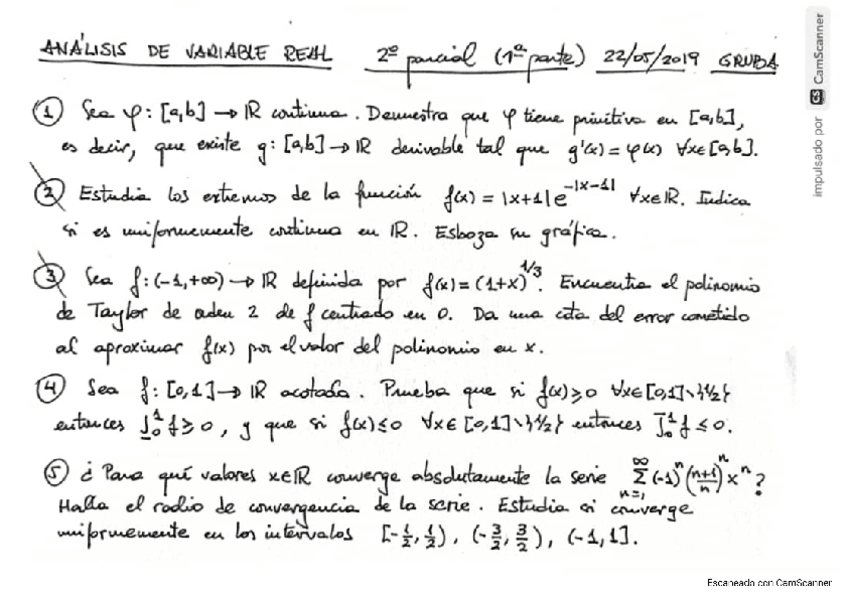 ANÁLISIS DE VARIABLE REAL 2º parcial (1ª parte) 22/05/2019 GRUPO A
① Sea φ: [a,b] → ℝ continua. Demuestra que φ tiene primitiva en [a,b],
es decir, que existe g: [a,b] → ℝ derivable tal que g'(x) = φ(x) ∀x∈[a,b].
② Estudia los extremos de la función f(x) = |x+1|e^{-|x-1|} ∀x∈ℝ. Indica
si es uniformemente continua en ℝ. Esboza su gráfica.
③ Sea f: (-1,+∞) → ℝ definida por f(x) = (1+x)^{1/3}. Encuentra el polinomio
de Taylor de orden 2 de f centrado en 0. Da una cota del error cometido
al aproximar f(x) por el valor del polinomio en x.
④ Sea f: [0,1] → ℝ acotada. Prueba que si f(x) ≥ 0 ∀x∈[0,1]\{1/2}
entonces \underline{∫}_0^1 f ≥ 0, y que si f(x) ≤ 0 ∀x∈[0,1]\{1/2} entonces \overline{∫}_0^1 f ≤ 0.
⑤ ¿Para qué valores x∈ℝ converge absolutamente la serie ∑_{n=1}^∞ (-1)^n ((n+1)/n)^n x^n?
Halla el radio de convergencia de la serie. Estudia si converge
uniformemente en los intervalos [-1/2, 1/2), (-3/2, 3/2), (-1,1].
impulsado por CS CamScanner
Escaneado con CamScanner